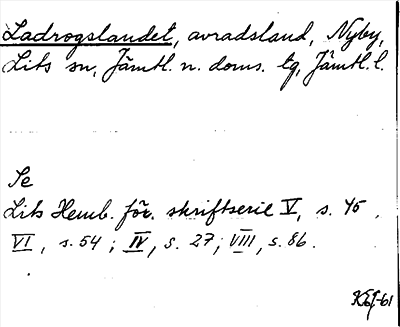 Ladrogslandet, avradsland, Nyby,
Lits sn, Jämtl. n. doms. tg, Jämtl. l.
Se
Lits Hemb. för. skriftserie V, s. 45,
VI, s. 54; IV, s. 27; VIII, s. 86.